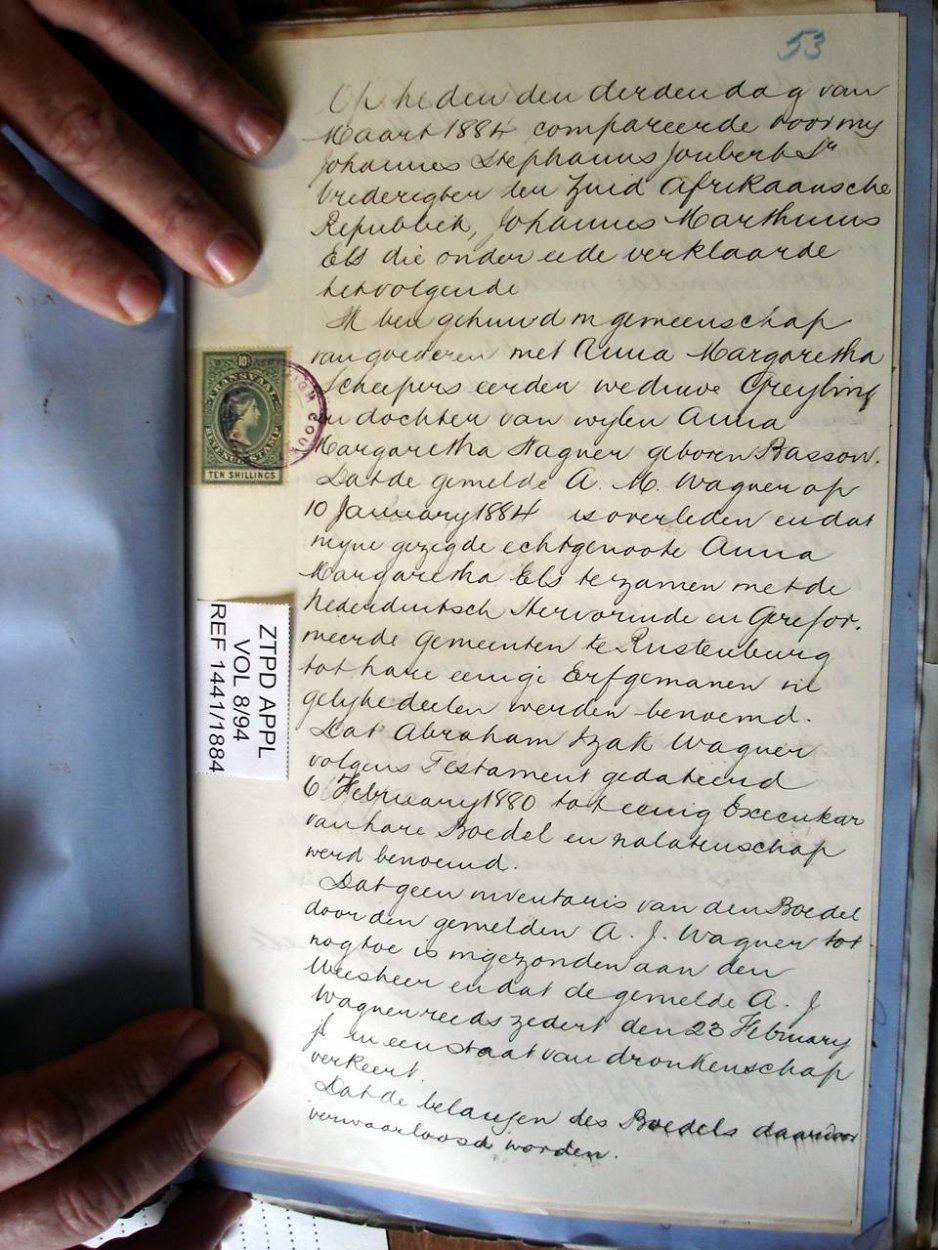 53
Op heden den derden dag van
Maart 1884 compareerde voor my
Johannes Stephanus Joubert Sr
Vrederegter der Zuid Afrikaansche
Republiek, Johannes Marthinus
Els die onder eede verklaarde
hetvolgende
Ik ben gehuwd in gemeenschap
van goederen met Anna Margaretha
Scheepers eerder weduwe Greyling
en dochter van wylen Anna
Margaretha Wagner geboren Basson.
Dat de gemelde A. M. Wagner op
10 January 1884 is overleden en dat
myne gezegde echtgenoote Anna
Margaretha Els tezamen met de
Nederduitsch Hervormde en Gerefor.
meerde gemeenten te Rustenburg
tot hare eenige Erfgenamen in
gelyke deelen werden benoemd.
Dat Abraham Izak Wagner
volgens Testament gedateerd
6 February 1880 tot eenig Executeur
van hare Boedel en nalatenschap
werd benoemd.
Dat geen inventaris van den Boedel
door den gemelden A. J. Wagner tot
nogtoe is ingezonden aan den
Weesheer en dat de gemelde A. J
Wagner reeds zedert den 23 February
jl in een staat van dronkenschap
verkeert.
Dat de belangen des Boedels daardoor
verwaarloosd worden.
10/
TRANSVAAL
REVENUE STAMP
TEN SHILLINGS
ZTPD APPL
VOL 8/94
REF 1441/1884